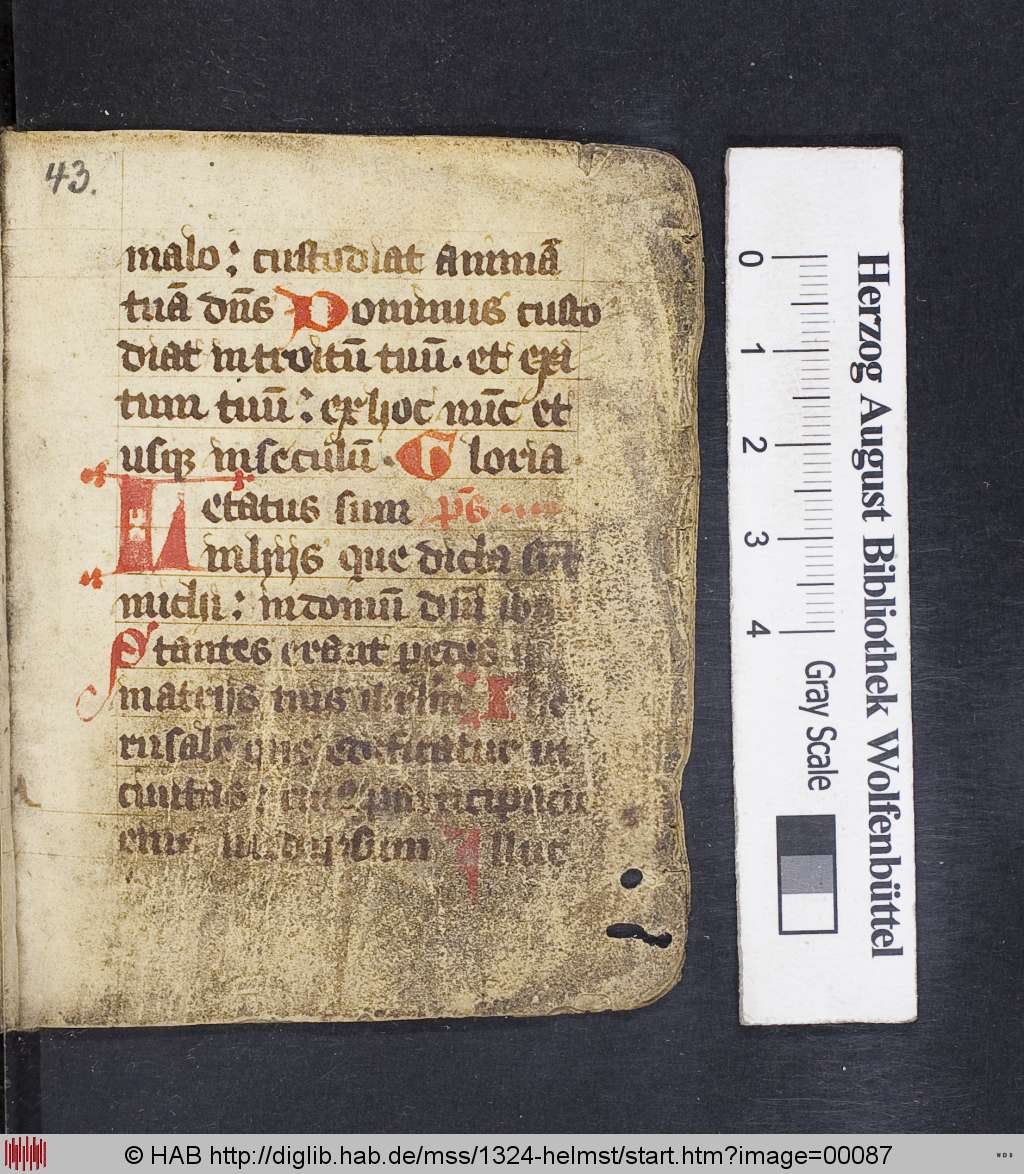 43.
malo : custodiat animā
tuā dn̄s Dominus custo
diat introitū tuū · et exi
tum tuū : ex hoc nūc et
usq; in seculū · Gloria
Letatus sum ps̄
in hijs que dicta sūt
michi : in domū dn̄i ib;
Stantes erant pedes
matrijs tuis Ihe
rusalē que edificatur ut
ciuitas : cuiꝰ participacio
eius in idipsum Illuc
0 1 2 3 4
Gray Scale
Herzog August Bibliothek Wolfenbüttel
© HAB http://diglib.hab.de/mss/1324-helmst/start.htm?image=00087